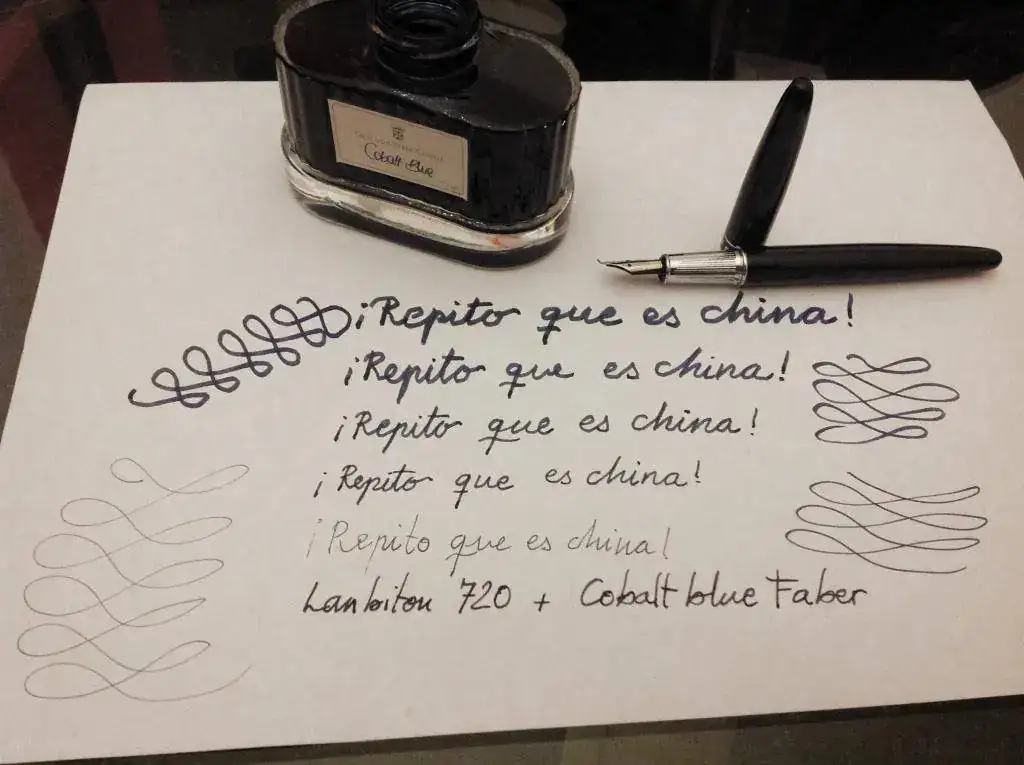 Cobalt Blue
¡Repito que es china!
¡Repito que es china!
¡Repito que es china!
¡Repito que es china!
¡Repito que es china!
Lanbitou 720 + Cobalt blue Faber